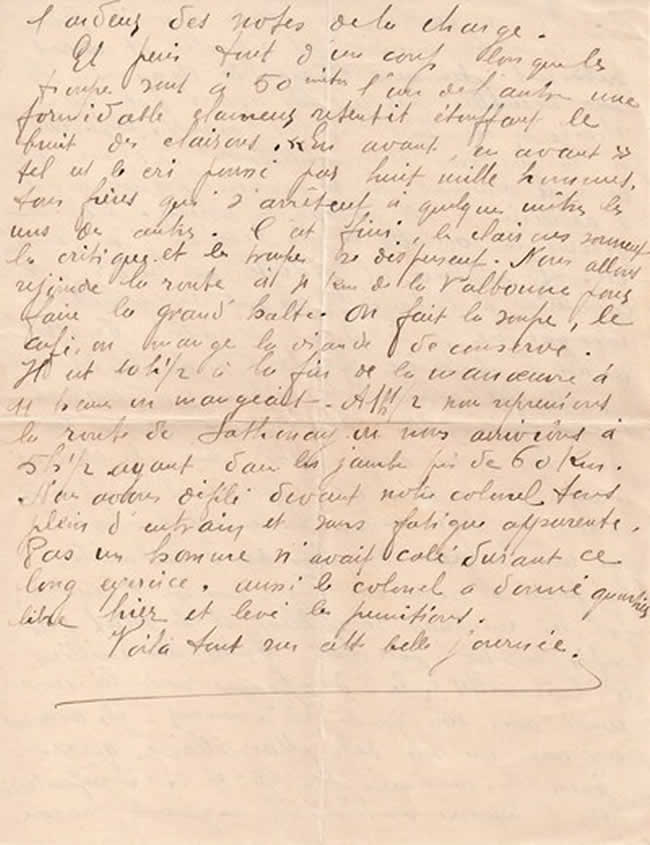 l'ardeur des notes de la charge.
Et puis tout d'un coup lorsque les
troupes sont à 50 mètres l'un de l'autre une
formidable clameur retentit étouffant le
bruit des clairons. « En avant, en avant »
tel est le cri poussé par huit mille hommes,
tous frères qui s'arrêtent à quelques mètres les
uns des autres. C'est fini, les clairons sonnent
la critique et les troupes se dispersent. Nous allons
rejoindre la route à 4 km de la Valbonne pour
faire la grand'halte. On fait la soupe, le
café, on mange la viande de conserve.
Il est 10h1/2 à la fin de la manœuvre à
11 heures on mangeait. A 1h1/2 nous reprenions
la route de Sathonay où nous arrivions à
5h1/2 ayant dans les jambes près de 60 Km.
Nous avons défilé devant notre colonel tous
plein d'entrain et sans fatigue apparente.
Pas un homme n'avait calé durant ce
long exercice. aussi le colonel a donné quartier
libre hier et levé les punitions.
Voilà tout sur cette belle journée.